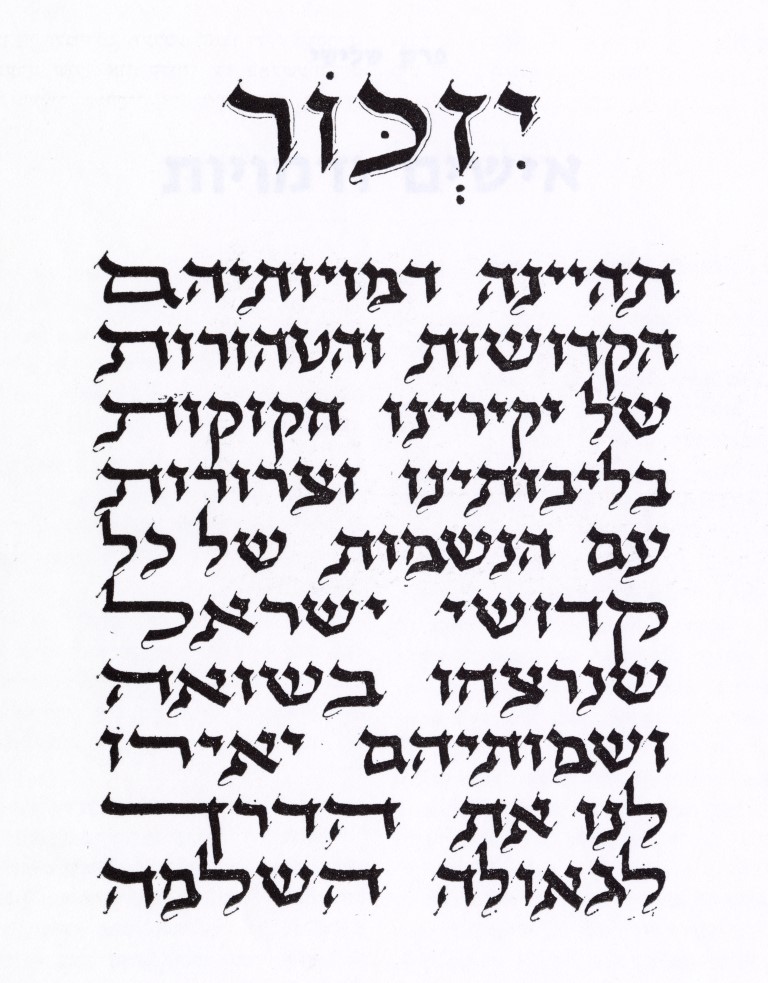 יִזְכּוֹר
תהיינה דמויותיהם
הקדושות והטהורות
של יקירינו חקוקות
בליבותינו וצרורות
עם הנשמות של כל
קדושי ישראל
שנרצחו בשואה
ושמותיהם יאירו
לנו את הדרך
לגאולה השלמה